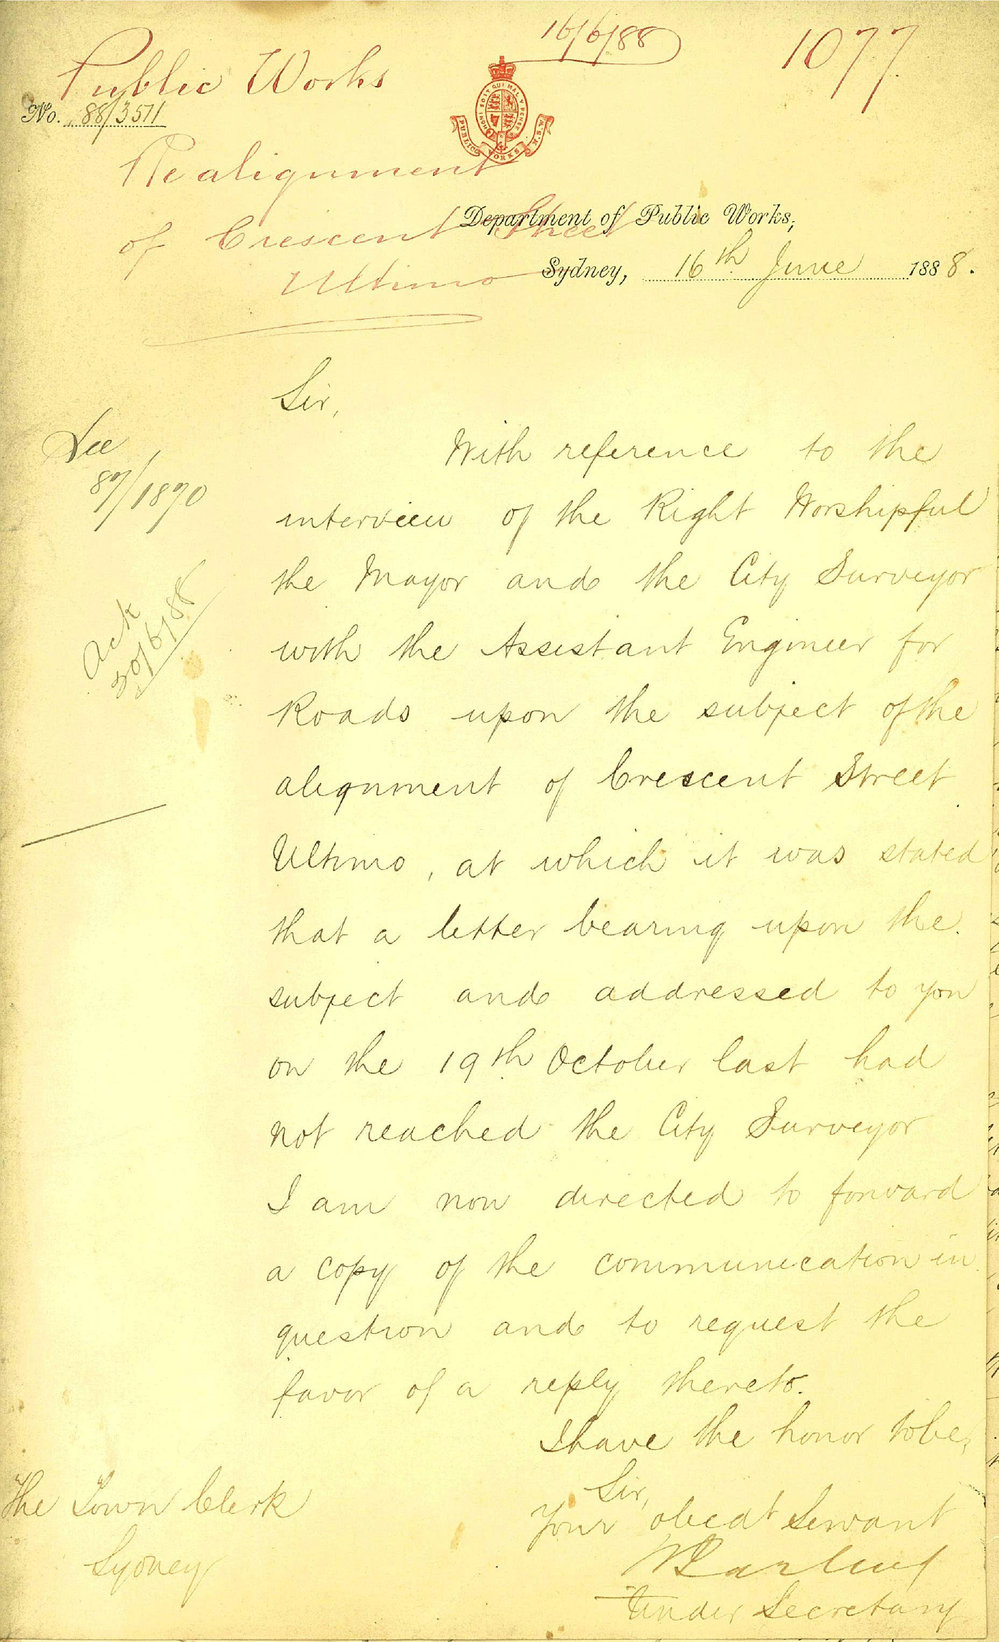 16/6/88
1077
Public Works
No. 88/3571
HONI SOIT QUI MAL Y PENSE
PUBLIC WORKS N.S.W.
Realignment
of Crescent Street
Ultimo
Department of Public Works,
Sydney, 16th June 1888.
Sir,
See
87/1870
Ack
20/6/88
With reference to the
interview of the Right Worshipful
the Mayor and the City Surveyor
with the Assistant Engineer for
Roads upon the subject of the
alignment of Crescent Street
Ultimo, at which it was stated
that a letter bearing upon the
subject and addressed to you
on the 19th October last had
not reached the City Surveyor
I am now directed to forward
a copy of the communication in
question and to request the
favor of a reply thereto.
I have the honor to be,
Sir,
Your obedt Servant
Under Secretary
The Town Clerk
Sydney